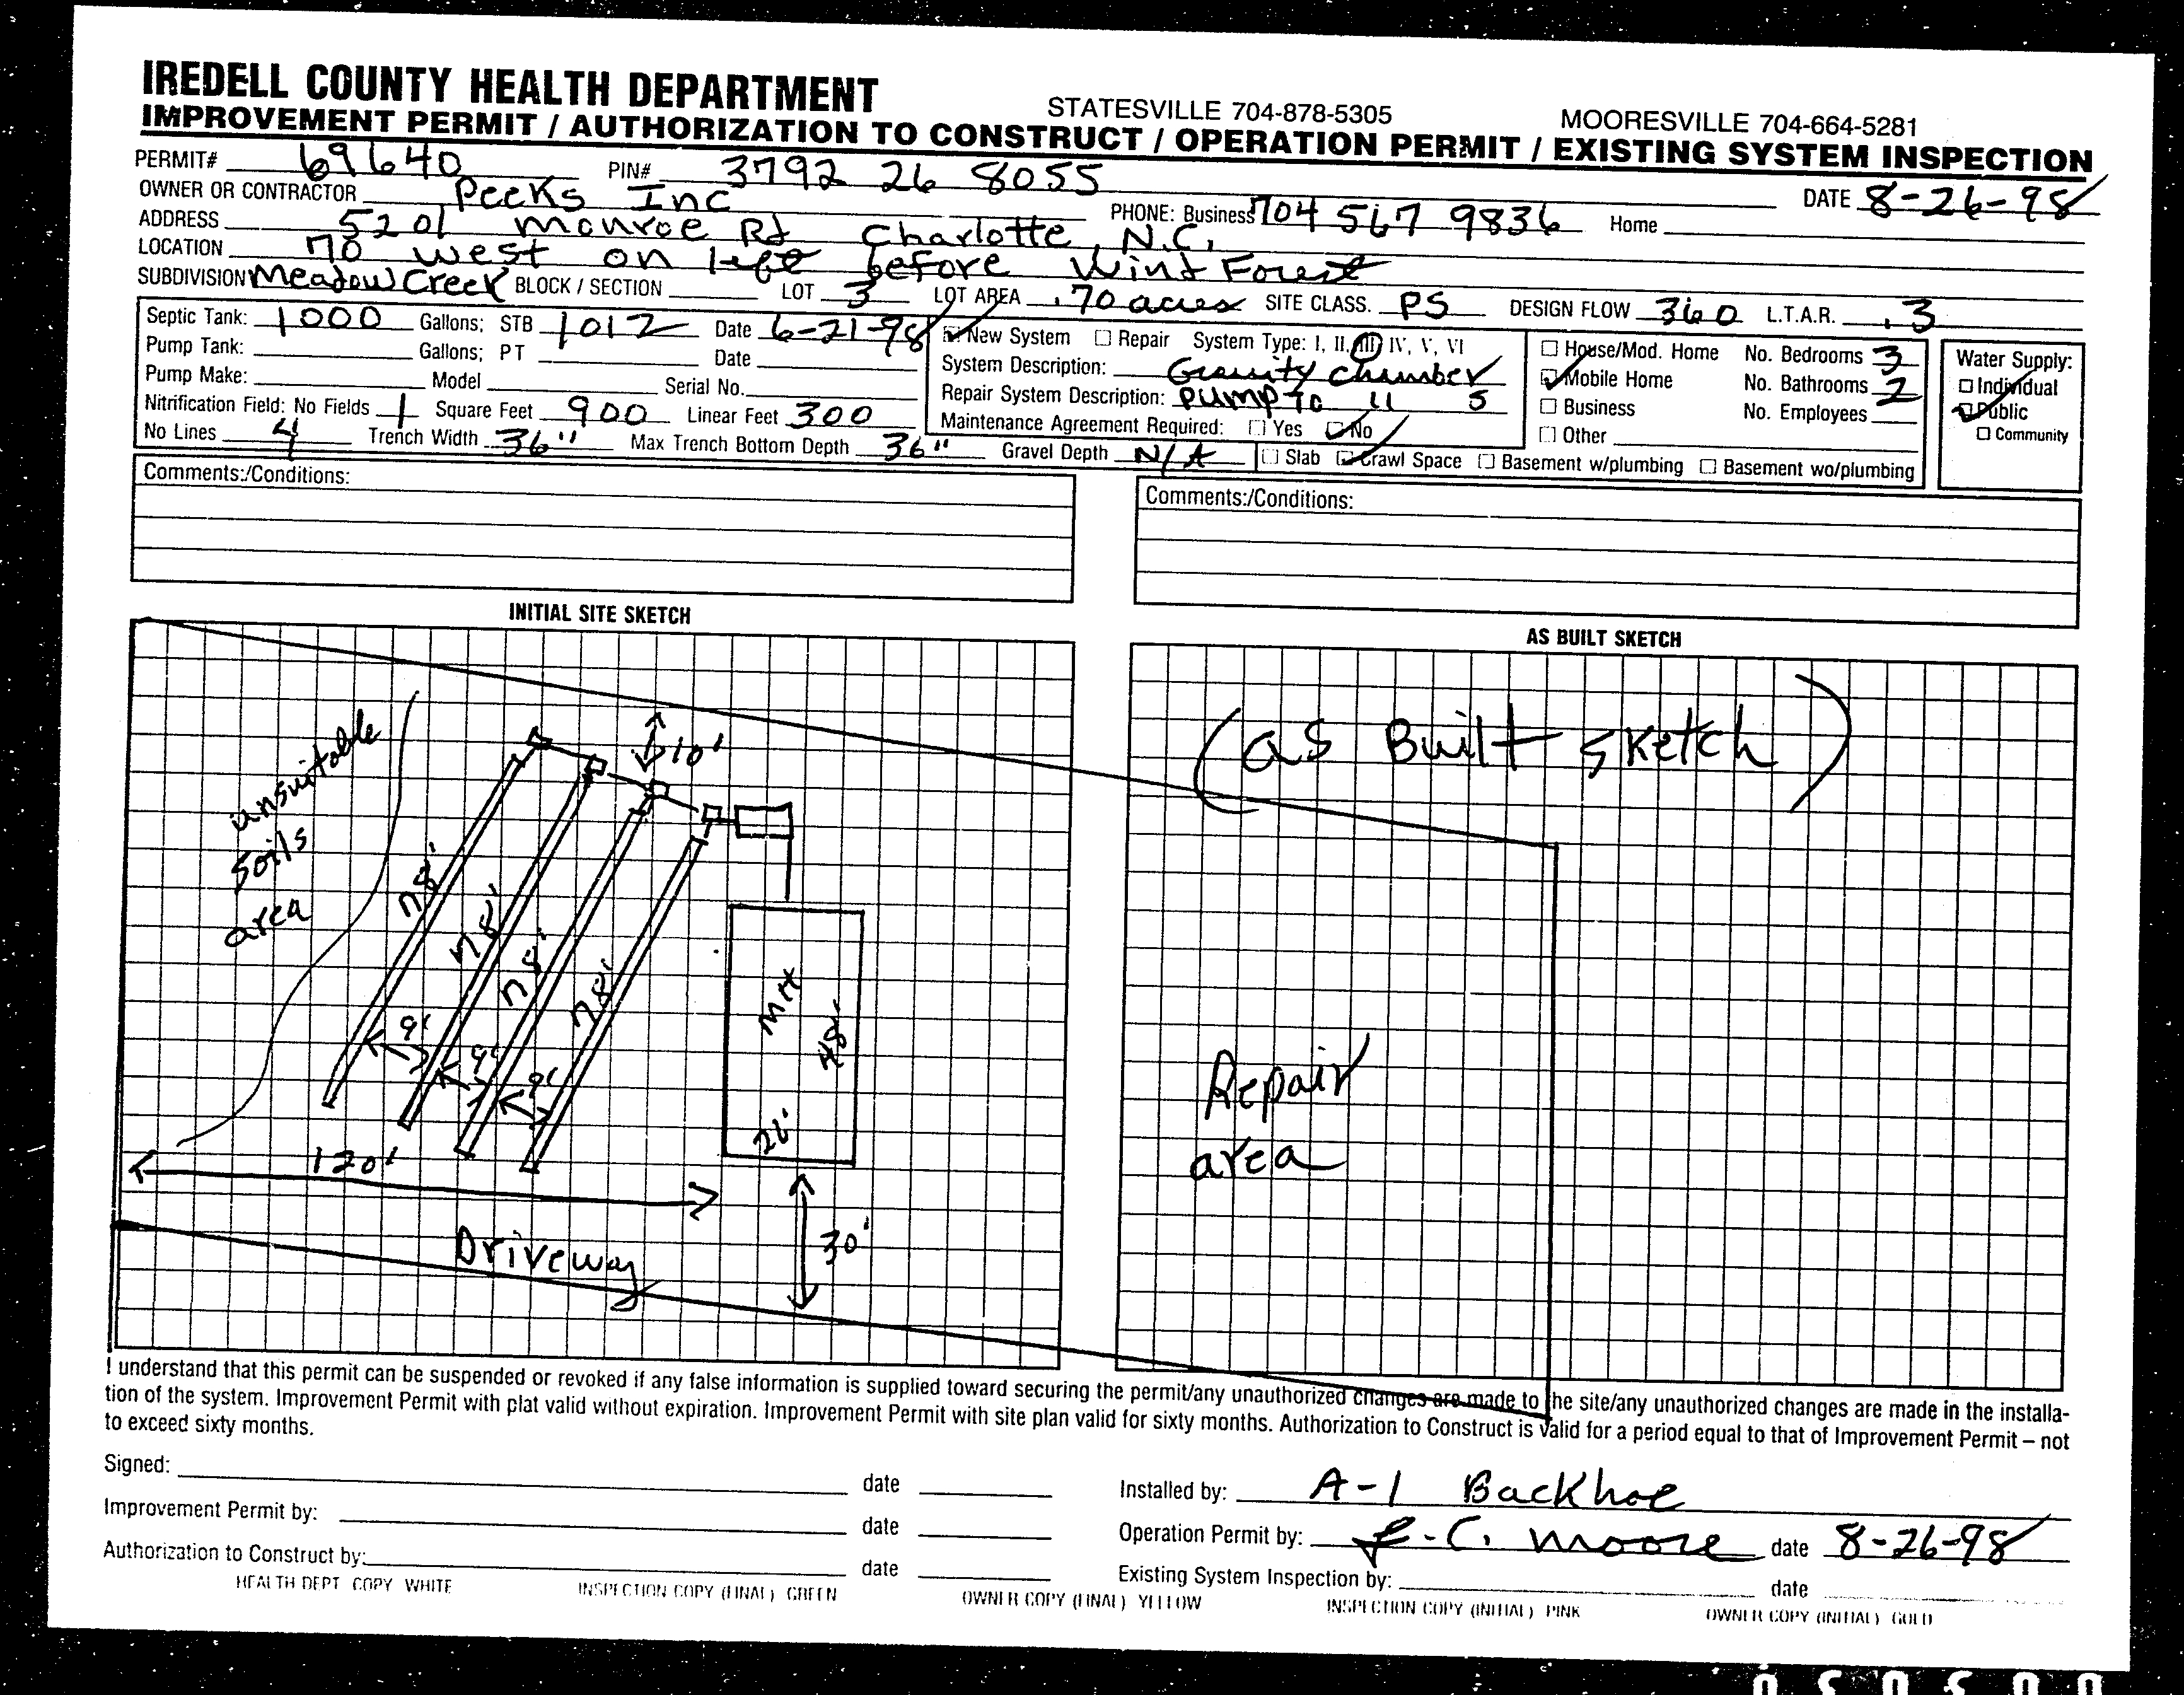 IREDELL COUNTY HEALTH DEPARTMENT STATESVILLE 704-878-5305 MOORESVILLE 704-664-5281
IMPROVEMENT PERMIT / AUTHORIZATION TO CONSTRUCT / OPERATION PERMIT / EXISTING SYSTEM INSPECTION
PERMIT# 69640 PIN# 3792 26 8055 DATE 8-26-98
OWNER OR CONTRACTOR Peeks Inc PHONE: Business 704 567 9836 Home
ADDRESS 5201 Monroe Rd Charlotte, N.C.
LOCATION 70 West on left before Wind Forest
SUBDIVISION Meadow Creek BLOCK / SECTION LOT 3 LOT AREA .70 acres SITE CLASS. PS DESIGN FLOW 360 L.T.A.R. .3
Septic Tank: 1000 Gallons; STB 1012 Date 6-21-98
Pump Tank: Gallons; PT Date
Pump Make: Model Serial No.
Nitrification Field: No Fields 1 Square Feet 900 Linear Feet 300
No Lines 4 Trench Width 36" Max Trench Bottom Depth 36" Gravel Depth N/A
New System Repair System Type: I, II, III, IV, V, VI
System Description: Gravity Chamber
Repair System Description: Pump to " s
Maintenance Agreement Required: Yes No
Slab Crawl Space Basement w/plumbing Basement wo/plumbing
House/Mod. Home No. Bedrooms 3
Mobile Home No. Bathrooms 2
Business No. Employees
Other
Water Supply:
Individual
Public
Community
Comments:/Conditions:
Comments:/Conditions:
INITIAL SITE SKETCH
unsuitable
soils
area
10'
78'
78'
78'
78'
9'
9'
9'
MH
48'
26'
120'
30'
Driveway
AS BUILT SKETCH
(as Built sketch)
Repair
area
I understand that this permit can be suspended or revoked if any false information is supplied toward securing the permit/any unauthorized changes are made to the site/any unauthorized changes are made in the installa-
tion of the system. Improvement Permit with plat valid without expiration. Improvement Permit with site plan valid for sixty months. Authorization to Construct is valid for a period equal to that of Improvement Permit – not
to exceed sixty months.
Signed: date
Improvement Permit by: date
Authorization to Construct by: date
Installed by: A-1 Backhoe
Operation Permit by: C. Moore date 8-26-98
Existing System Inspection by: date
HEALTH DEPT COPY WHITE INSPECTION COPY (FINAL) GREEN OWNER COPY (FINAL) YELLOW INSPECTION COPY (INITIAL) PINK OWNER COPY (INITIAL) GOLD